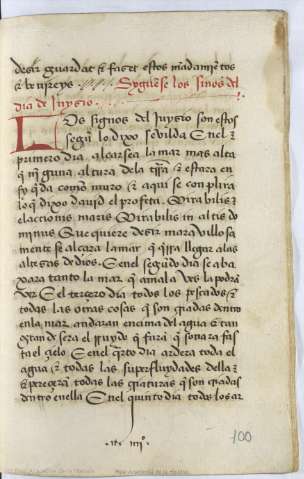 desir guardat & faser estos mādamiētos
Syguēse los sinos del
dia de Juysio
Los signos del Juysio son estos
segū lo dixo sevilda Enel
primero dia alcarsea la mar mas alta
q̄ nīguna altura dela trra & estara en
sy q̄da como muro & aqui se conplira
lo q̄ dixo david el profeta Mirabilis
elaciones maris Mirabilis in altis do
minus Que quiere desir maravillosa
mente se alcara la mar q̄ q̄rra llegar alas
altesas de dios. Enel segūdo dia se aba
xara tanto la mar q̄ a mala ves la podrā
ver Enel tercero dia todos los pescados &
todas las otras cosas q̄ son criadas dentro
enla mar andaran encima del agua & tan
grande sera el rruydo q̄ farā q̄ sonara fas
ta el çielo Enel q̄rto dia ardera toda el
agua & todas las superfluydades della
& pereçerā todas las criaturas q̄ son criadas
dentro en ella Enel quinto dia todos los ar
100